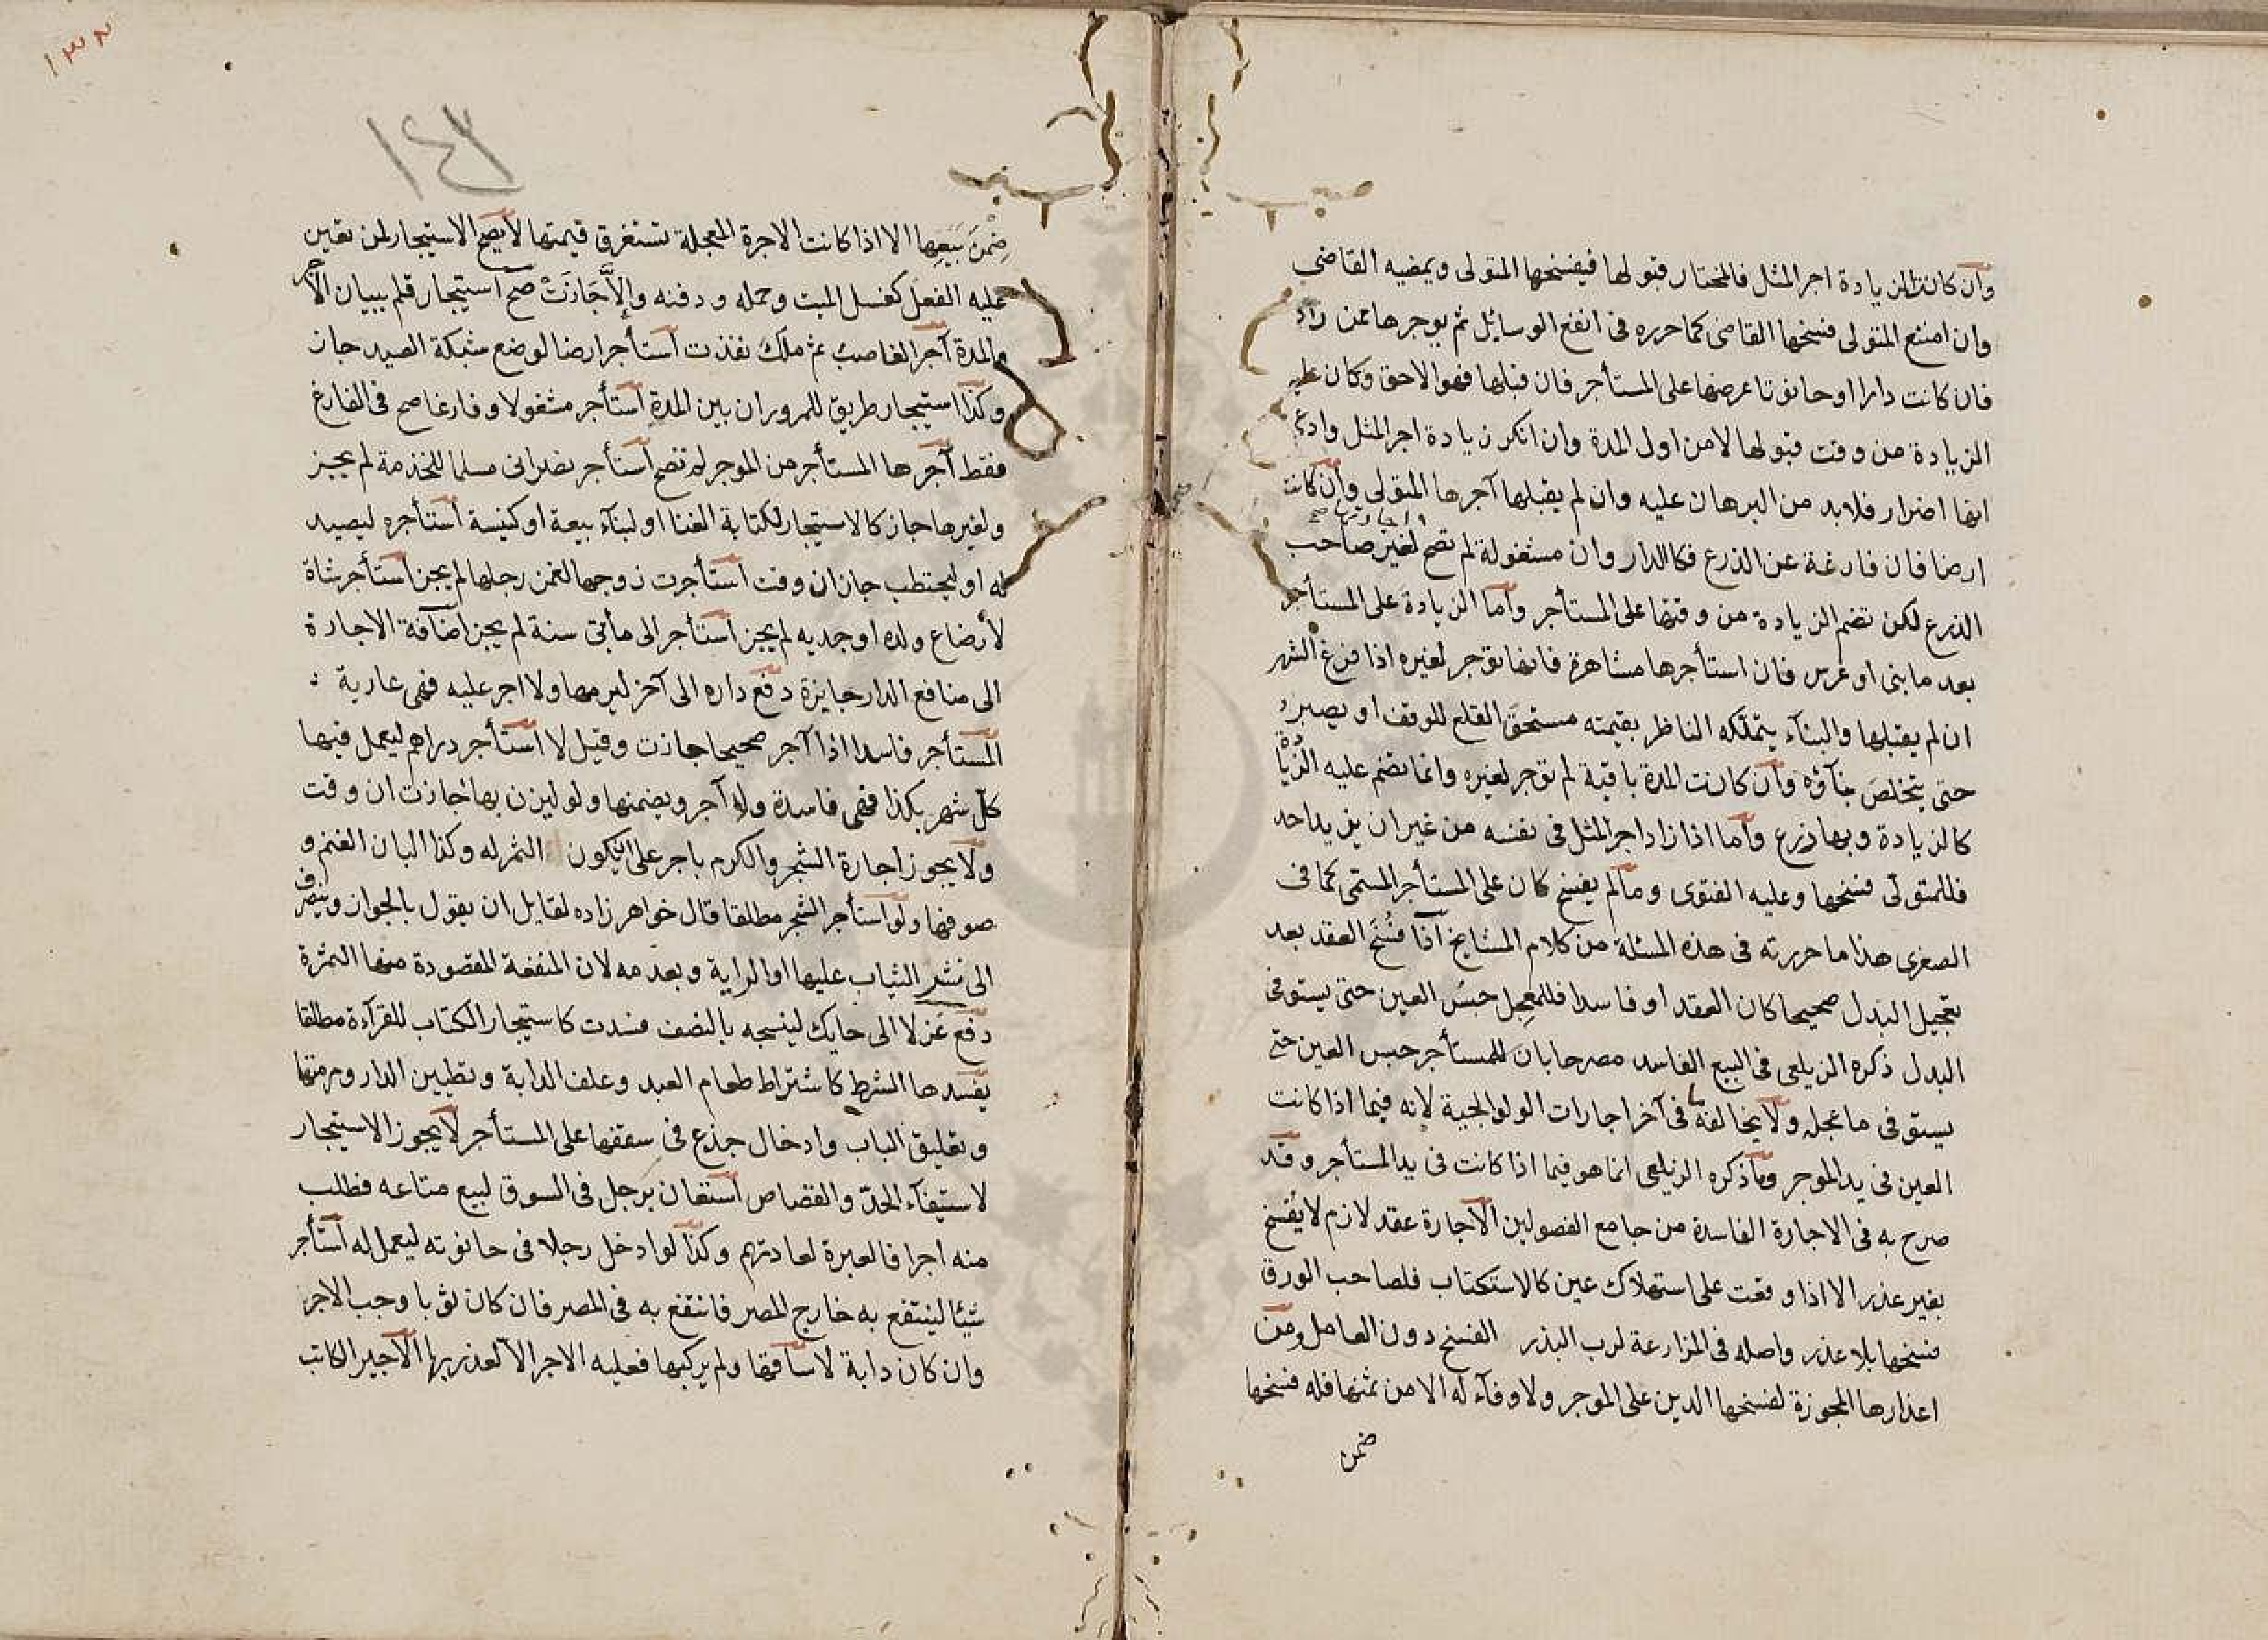 وان كانت الزيادة اجر المثل فالمختار قبولها فيفسخها المتولى ويمضيه القاضى
وان امتنع المتولى فسخها القاضى كما حرره فى انفع الوسائل ثم يوجرها ممن زاد
فان كانت دارا او حانوتا عرضها على المستأجر فان قبلها فهو الاحق وكان عليه
الزيادة من وقت قبولها لا من اول المدة وان انكر زيادة اجر المثل وادعى
انها اضرار فلابد من البرهان عليه وان لم يقبلها آجرها المتولى وان كانت
ارضا فان فارغة عن الزرع فكالدار وان مشغولة لم تصح اجارتها لغير صاحب
الزرع لكن تضم الزيادة من وقتها على المستأجر واما الزيادة على المستأجر
بعد ما بنى او غرس فان استأجرها مشاهرة فانها توجر لغيره اذا فرغ الشهر
ان لم يقبلها والبنآء يتملكه الناظر بقيمته مستحق القلع للوقف او يصبر
حتى يتخلص بنآؤه وان كانت المدة باقية لم توجر لغيره وانما تضم عليه الزيادة
كالزيادة وبها زرع واما اذا زاد اجر المثل فى نفسه من غير ان يزيد احد
فللمتولى فسخها وعليه الفتوى وما لم يفسخ كان على المستأجر المسمى كما فى
الصغرى هذا ما حررته فى هذه المسئلة من كلام المشايخ اذا فسخ العقد بعد
تعجيل البدل صحيحا كان العقد او فاسدا فللمعجل حبس العين حتى يستوفى
البدل ذكره الزيلعى فى البيع الفاسد مصرحا بان للمستأجر حبس العين حتى
يستوفى ما عجله ولا يخالفه ما فى آخر اجارات الولوالجية لانه فيما اذا كانت
العين فى يد الموجر وما ذكره الزيلعى انما هو فيما اذا كانت فى يد المستأجر وقد
صرح به فى الاجارة الفاسدة من جامع الفصولين الاجارة عقد لازم لا يفسخ
بغير عذر الا اذا وقعت على استهلاك عين كالاستكتاب فلصاحب الورق
فسخها بلا عذر واصله فى المزارعة لرب البذر الفسخ دون العامل ومن
اعذارها المجوزة لفسخها الدين على الموجر ولا وفآء له الا من ثمنها فله فسخها
ضمن
١٣٢
١٤٣
ضمن بيعها الا اذا كانت الاجرة المعجلة تستغرق قيمتها لا يصح الاستيجار لمن تعين
عليه الفعل كغسل الميت وحمله ودفنه والا جازت صح استيجار قلم ببيان الاجر
والمدة آجر الغاصب ثم ملك نفذت استأجر ارضا لوضع شبكة الصيد جاز
وكذا استيجار طريق للمرور ان بين المدة استأجر مشغولا وفارغا صح فى الفارغ
فقط آجرها المستأجر من الموجر لم تصح استأجر نصرانى مسلما للخدمة لم يجز
ولغيرها جاز كالاستيجار لكتابة الغنا او لبنآء بيعة او كنيسة استأجره ليصيد
له او ليحتطب جاز ان وقت استأجرت زوجها لغمز رجلها لم يجز استأجر شاة
لارضاع ولده او جديه لم يجز استأجر الى مأتى سنة لم يجز اضافة الاجارة
الى منافع الدار جايزة دفع داره الى آخر ليرمها ولا اجر عليه فهى عارية
المستأجر فاسدا اذا آجر صحيحا جازت وقيل لا استأجر دراهم ليعمل فيها
كل شهر بكذا فهى فاسدة ولا اجر ويضمنها ولو ليزن بها جازت ان وقت
ولا يجوز اجارة الشجر والكرم باجر على ان يكون الثمر له وكذا البان الغنم و
صوفها ولو استأجر الشجر مطلقا قال خواهر زاده لقايل ان يقول بالجواز وينصرف
الى نشر الثياب عليها او الراية وبعدمه لان المنفعة المقصودة منها الثمرة
دفع غزلا الى حايك لينسجه بالنصف فسدت كاستيجار الكتاب للقرآءة مطلقا
يفسدها الشرط كاشتراط طعام العبد وعلف الدابة وتطيين الدار ومرمتها
وتعليق الباب وادخال جذع فى سقفها على المستأجر لا يجوز الاستيجار
لاستيفآء الحد والقصاص استعان برجل فى السوق لبيع متاعه فطلب
منه اجرا فالعبرة لعادتهم وكذا لو ادخل رجلا فى حانوته ليعمل له استأجر
شيئا لينتفع به خارج المصر فانتفع به فى المصر فان كان ثوبا وجب الاجر
وان كان دابة لا ساقها ولم يركبها فعليه الاجر الا لعذر بها الاجير الكاتب